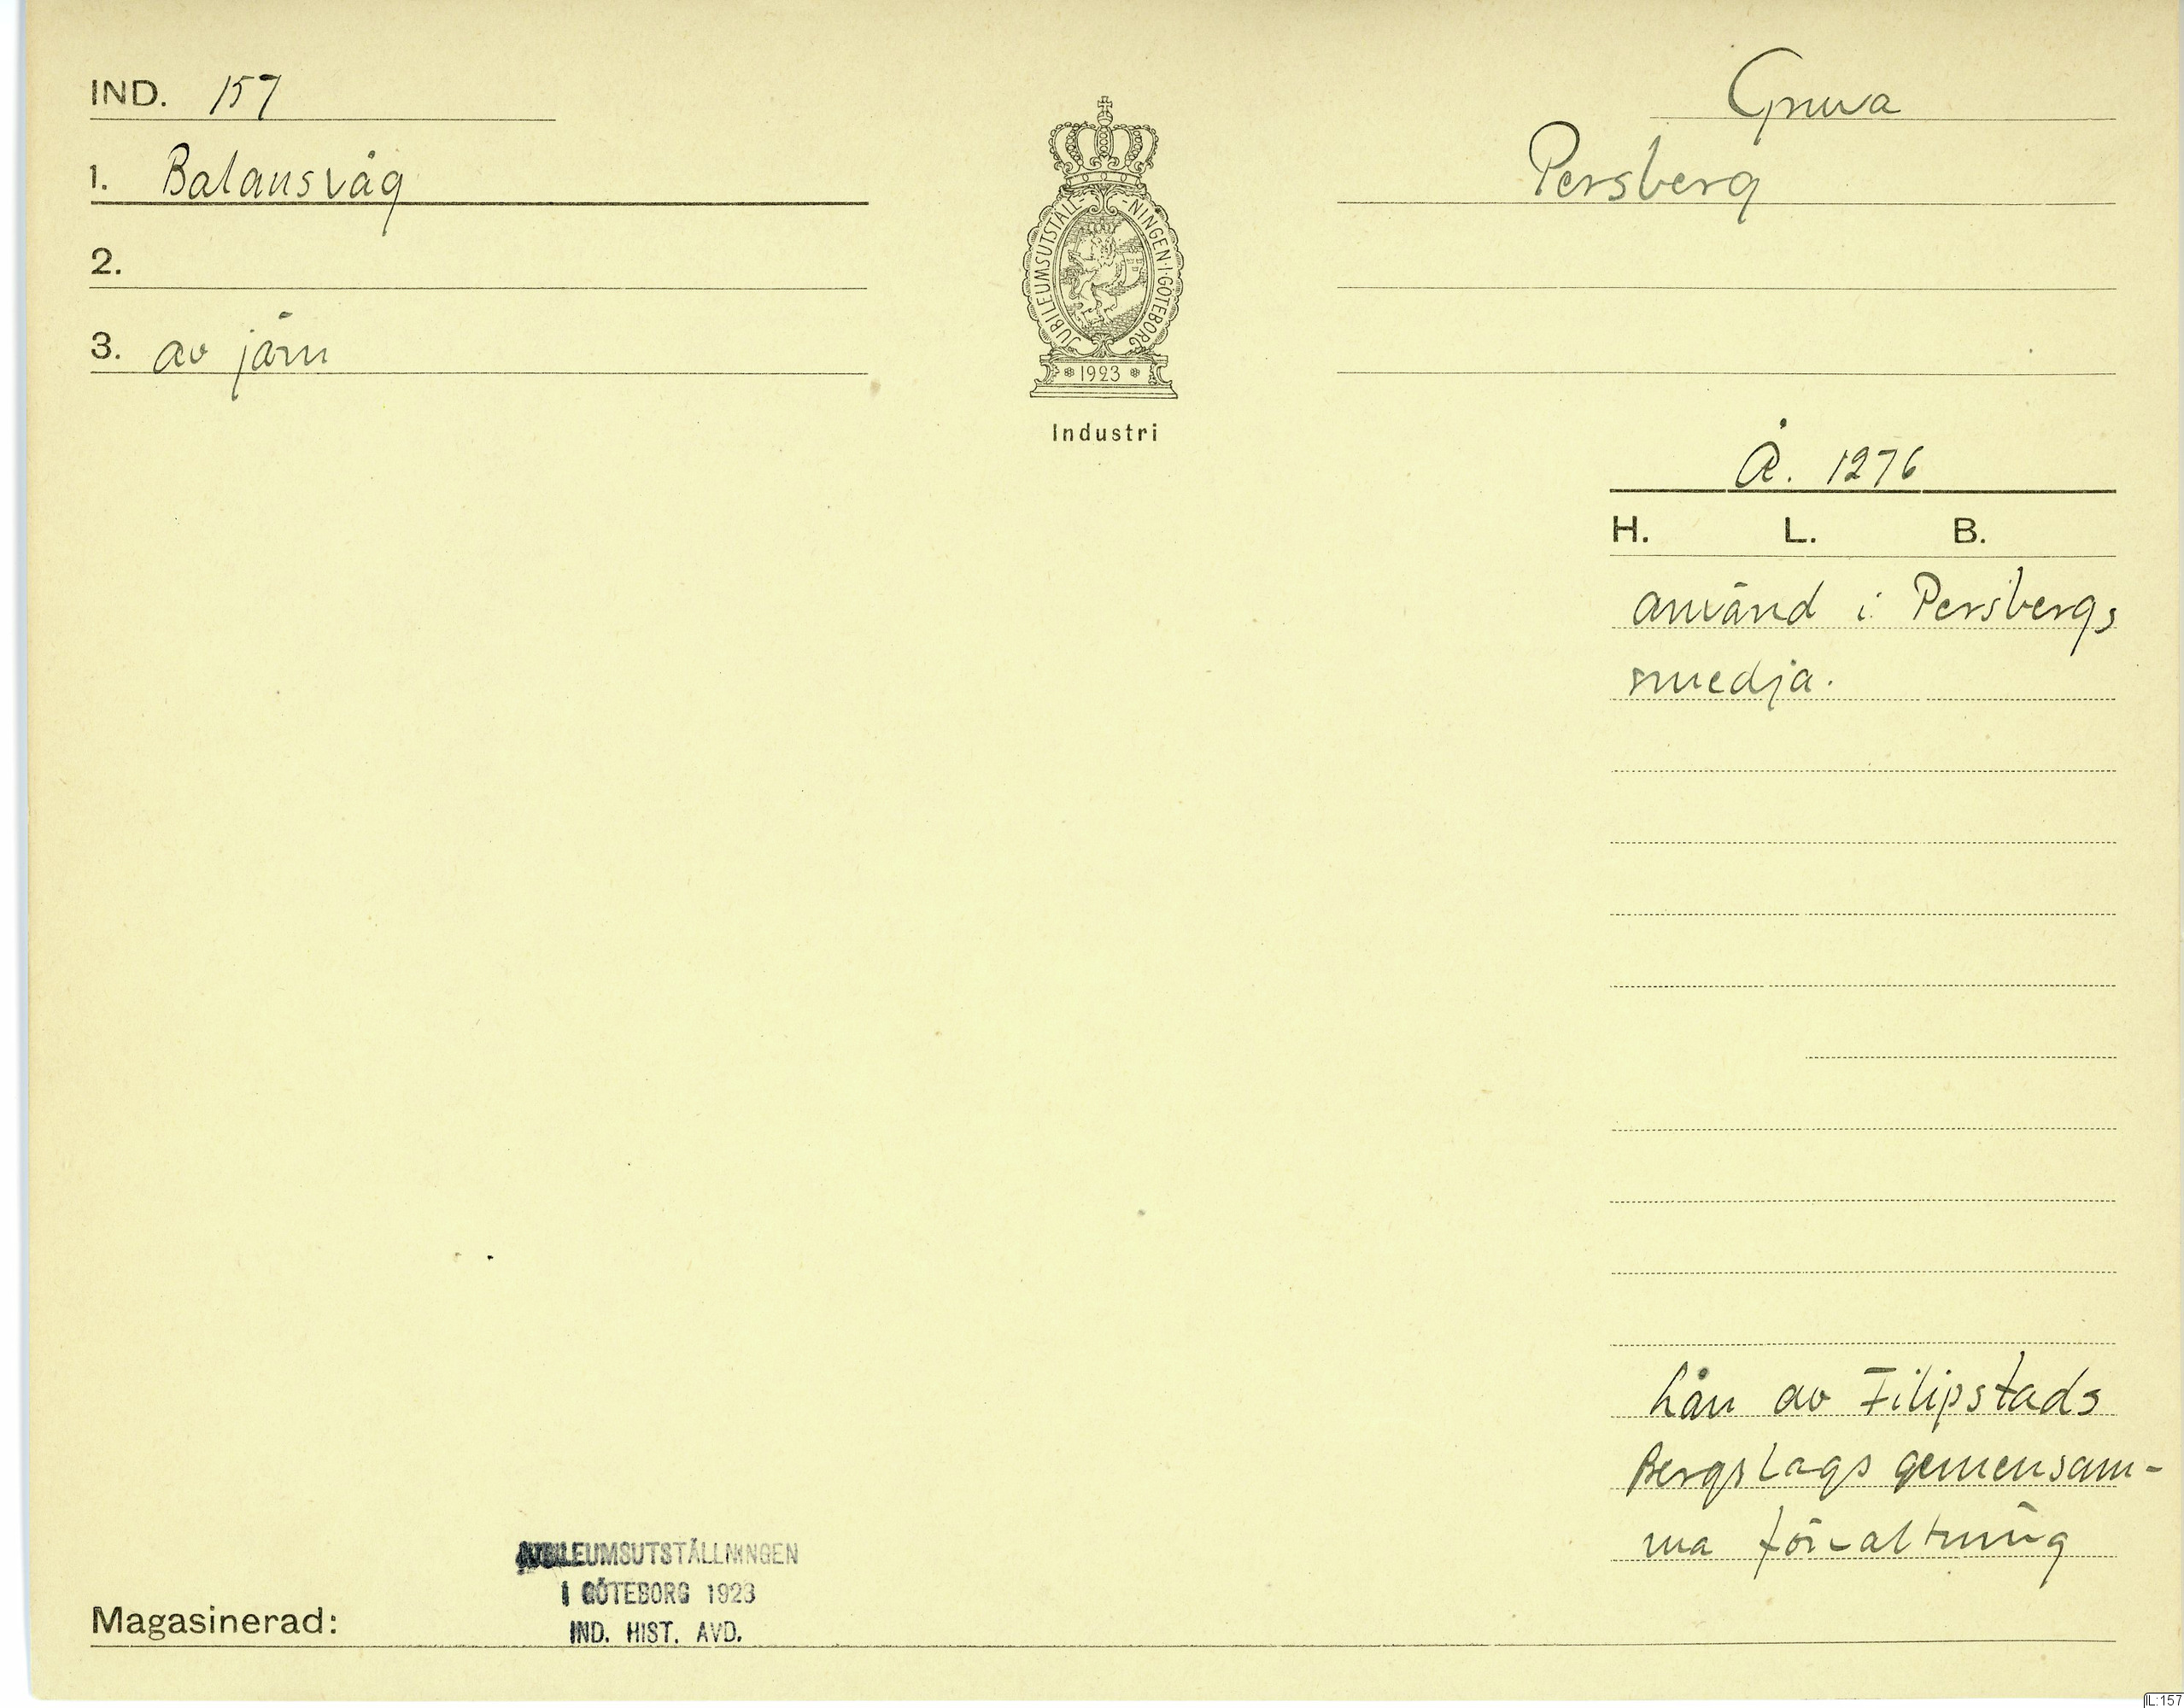 IND. 157
Gruva
1. Balansvåg
Persberg
2.
3. av järn
JUBILEUMSUTSTÄLL-NINGEN·I·GÖTEBORG
1923
Industri
Å. 1276
H. L. B.
använd i Persbergs
smedja.
Lån av Filipstads
Bergslags gemensam-
ma förvaltning
JUBILEUMSUTSTÄLLNINGEN
I GÖTEBORG 1923
IND. HIST. AVD.
Magasinerad:
IL:157